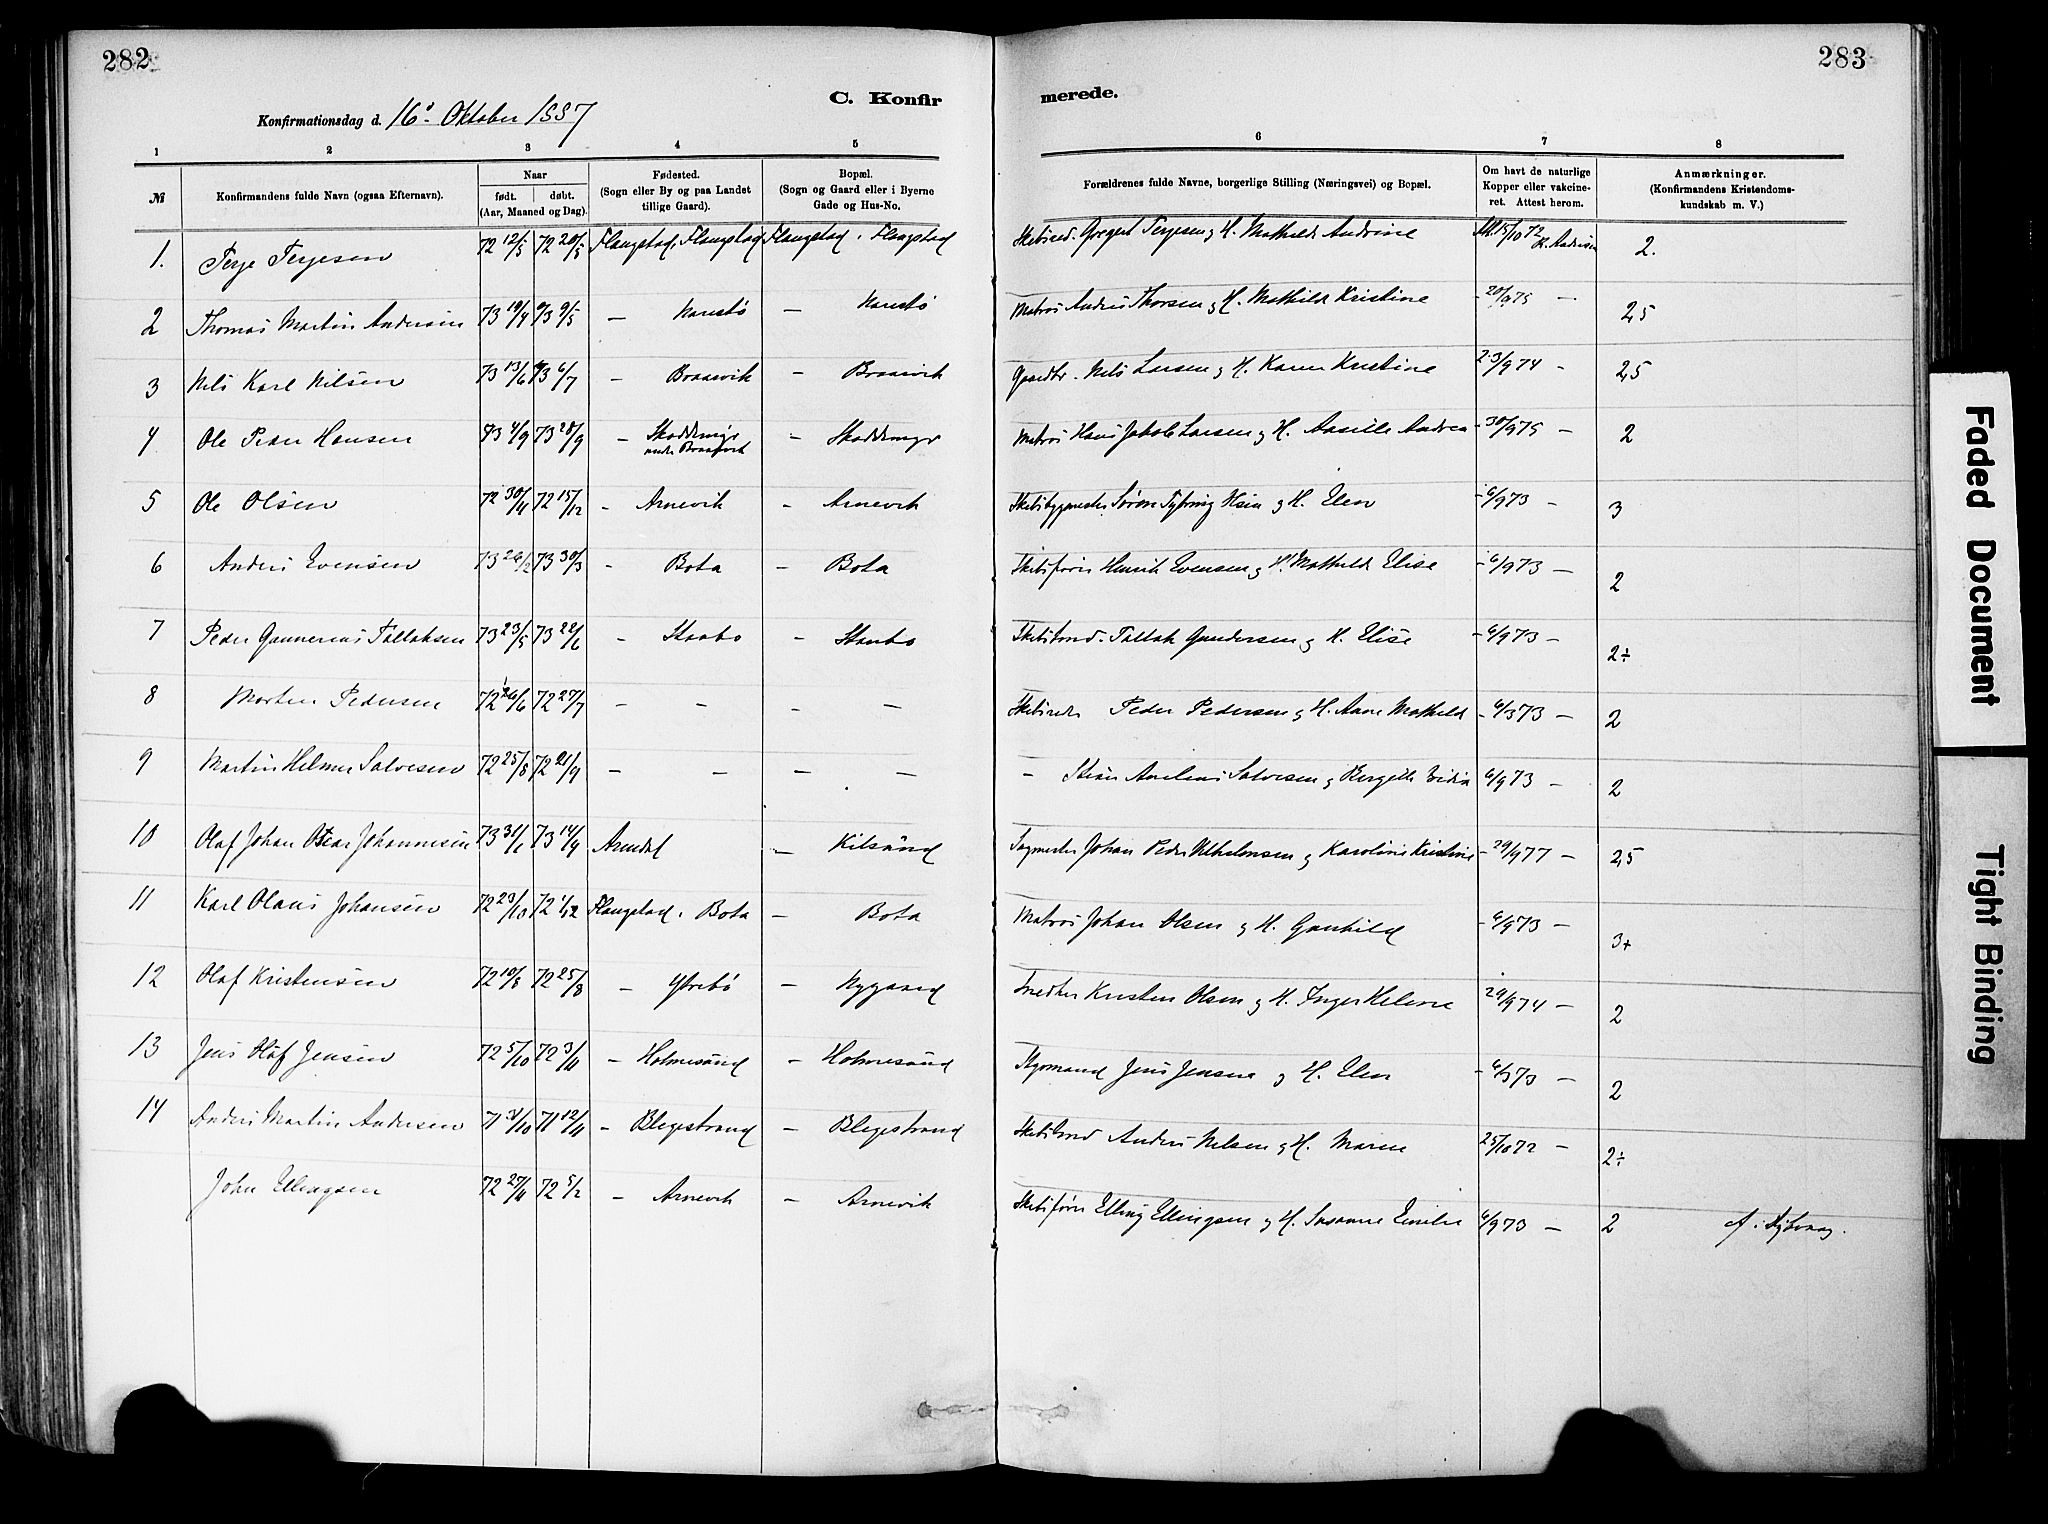 282
283
C. Konfir
merede.
Konfirmationsdag d. 16de Oktober 1887
1 2 3 4 5 6 7 8
№
Konfirmandens fulde Navn (ogsaa Efternavn).
Naar
født. døbt.
(Aar, Maaned og Dag).
Fødested.
(Sogn eller By og paa Landet
tillige Gaard).
Bopæl.
(Sogn og Gaard eller i Byerne
Gade og Hus-No.
Forældrenes fulde Navne, borgerlige Stilling (Næringsvei) og Bopæl.
Om havt de naturlige
Kopper eller vakcine-
ret. Attest herom.
Anmærkninger.
(Konfirmandens Kristendoms-
kundskab m. V.)
1. Terje Terjesen 72 12/5 72 20/5 Flaugstad, Flaugstad Flaugstad, Flaugstad Terjesen og H. Mathilde Andrine 2.
2 Thomas Martin Andersen 73 19/4 73 9/5 — Narestø — Narestø Matros Anders Thorsen og H. Mathilde Kristine - 20/9 75 — 2,5
3 Nils Karl Nilsen 73 13/6 73 6/7 — Braarvik — Braarvik Gaardbr. Nils Larsen og H. Karen Kristine 23/9 74 - 2,5
4 Ole Peder Hansen 73 4/9 73 28/9 — Skoddemyr under Braarvik — Skoddemyr Matros Hans Jakob Larsen og H. Aasille Andrea - 30/9 75 — 2
5 Ole Olsen 72 30/11 72 15/12 - Arnevik - Arnevik Skibsbygmester Søren og H. Elen - 6/9 73 - 3
6 Anders Evensen 73 26/2 73 30/3 - Bota — Bota Skibsfører Henrik Evensen og H. Mathilde Elise - 6/9 73 — 2
7 Peder Gunnerius Tallaksen 73 23/5 73 22/6 — Staubo — Staubo Skibstmd. Tallak Gundersen og H. Elise - 6/9 73 — 2÷
8 Morten Pedersen 72 26/6 72 27/7 — — — — Skibsreder Peder Pedersen og H. Anne Mathilde - 6/9 73 — 2
9 Martin Helmer Salvesen 72 25/8 72 21/9 — — — — - Salvesen og Bergitte 6/9 73 — 2
10 Olaf Johan Oscar Johannesen 73 31/1 73 14/9 Arendal — Kilsund Johan Peder Vilhelmsen og Karoline Kristine - 29/9 77 — 2,5
11 Karl Olaus Johansen 72 23/10 72 1/12 Flaugstad, Bota — Bota Matros Johan Olsen og H. Gunhild - 6/9 73 — 3+
12 Olaf Kristensen 72 10/8 72 25/8 — Ytrebø — Nygaard Kristen Olsen og H. Inger Helene 29/9 74 — 2
13 Jens Olaf Jensen 72 5/10 72 3/11 — Holmesund — Holmesund Styrmand Jens Jensen og H. Elen - 6/9 73 — 2
14 Anders Martin Andersen 71 71 12/11 — Blegestrand — Blegestrand Skibstmd Anders Nilsen og H. Maren 25/10 72 — 2÷
John Ellingsen 72 27/11 72 5/12 — Arnevik — Arnevik Skibsfører Elling Ellingsen og H. Susanne Emilie 6/9 73 — 2
Faded Document
Tight Binding